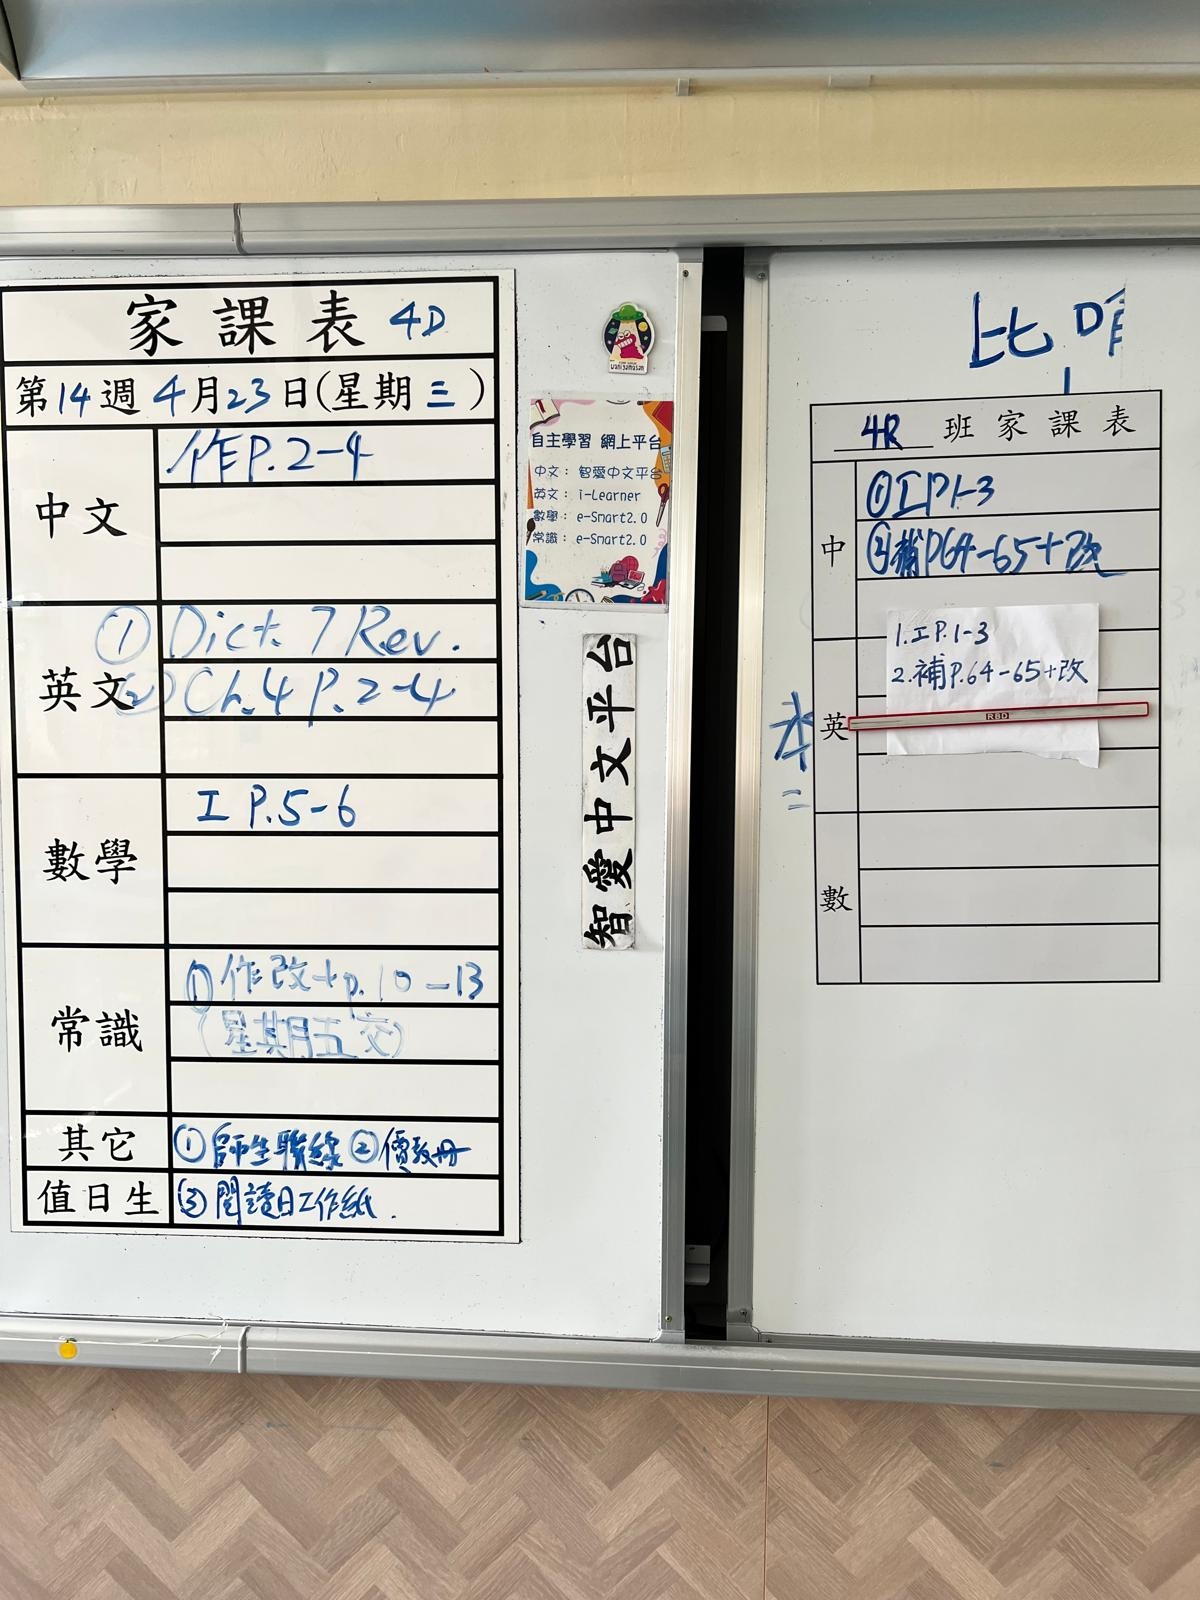 家課表 4D
第14週 4月23日(星期三)
中文
作P.2-4
英文
① Dict. 7 Rev.
② Ch.4 P.2-4
數學
工 P.5-6
常識
① 作改+p.10-13
(星期五交)
其它
① 師生聯線 ② 價教冊
值日生
③ 閱讀日工作紙.
自主學習 網上平台
中文： 智愛中文平台
英文： i-Learner
數學： e-Smart2.0
常識： e-Smart2.0
智愛中文平台
比
4R 班家課表
中
① 工P1-3
② 補P64-65+改
1.工P.1-3
2.補P.64-65+改
英
RBD
數